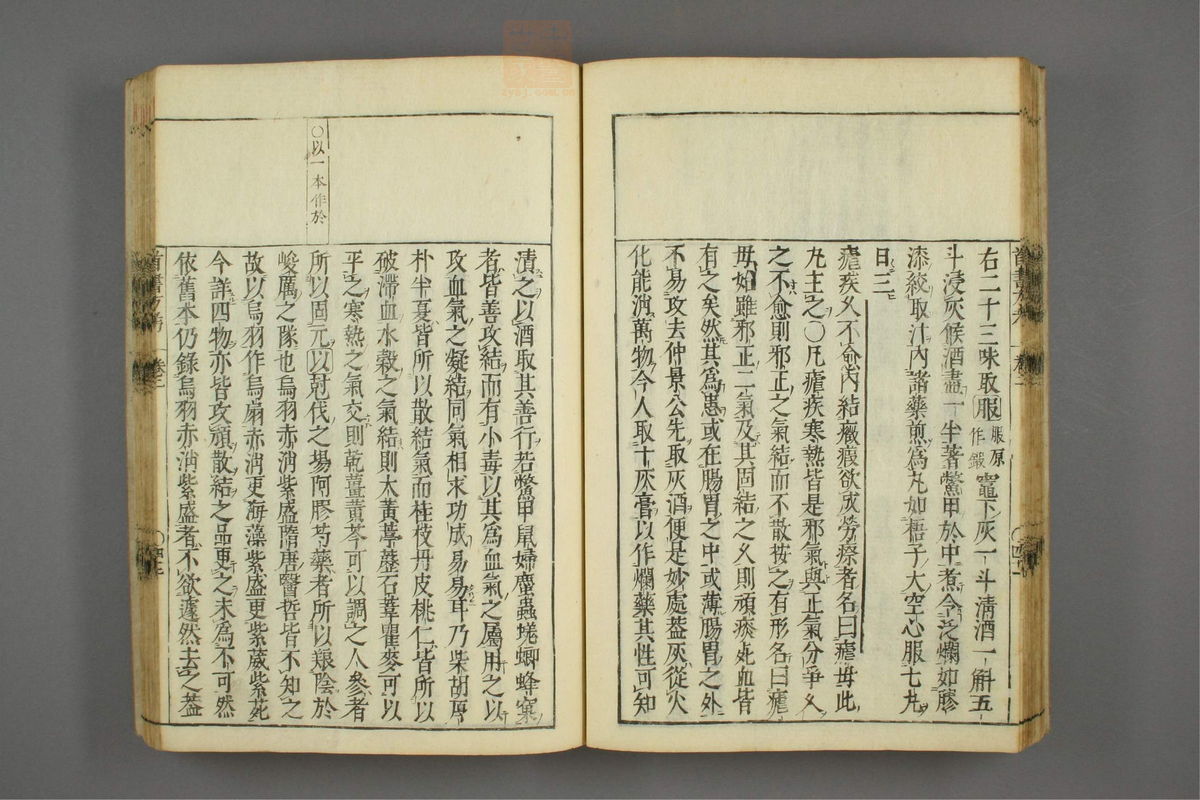 右二十三味取服服原作鍛竈下灰一斗清酒一斛五
斗浸灰候酒盡一半著鱉甲於中煮令泛爛如膠
漆絞取汁內諸藥煎爲丸如梧子大空心服七丸
日三
瘧疾久不愈內結癥瘕欲成勞瘵者名曰瘧母此
丸主之○凡瘧疾寒熱皆是邪氣與正氣分爭久
之不愈則邪正之氣結而不散按之有形名曰瘧
母始雖邪正二氣及其固結之久則頑痰死血皆
有之矣然其爲患或在腸胃之中或薄腸胃之外
不易攻去仲景公先取灰酒便是妙處蓋灰從火
化能消萬物今人取十灰膏以作爛藥其性可知
漬之以酒取其善行若鱉甲鼠婦䗪蟲蜣蜋蜂窠
者皆善攻結而有小毒以其爲血氣之屬用之以
攻血氣之凝結同氣相求功成易易耳乃柴胡厚
朴半夏皆所以散結氣而桂枝丹皮桃仁皆所以
破滯血水穀之氣結則大黃葶藶石葦瞿麥可以
平之寒熱之氣交則乾薑黃芩可以調之人參者
所以固元以尅伐之場阿膠芍藥者所以養陰於
峻厲之隊也烏羽赤消紫盛隋唐醫哲皆不知之
故以烏羽作烏扇赤消更海藻紫盛更紫葳紫菀
今詳四物亦皆攻頑散結之品更之未爲不可然
依舊本仍錄烏羽赤消紫盛者不欲遽然去之蓋
○以一本作於
卷三